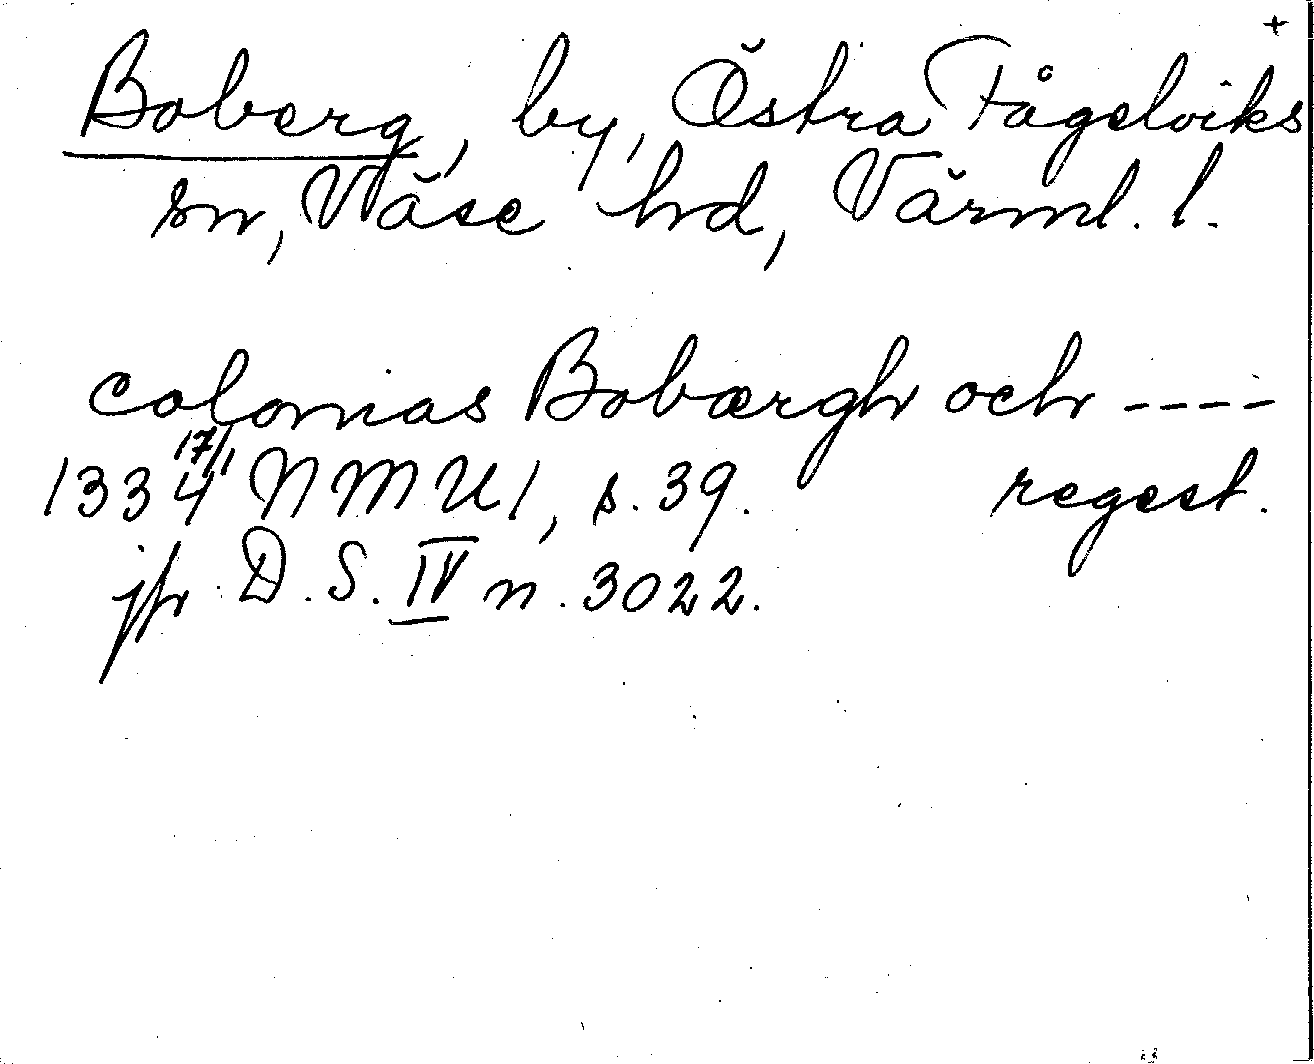 +
Boberg, by, Östra Fågelviks
sn, Väse hd, Värml. l.
colonias Bobærgh och ----
1334 17/1 NMU 1, s. 39. regest.
jfr D. S. IV n. 3022.